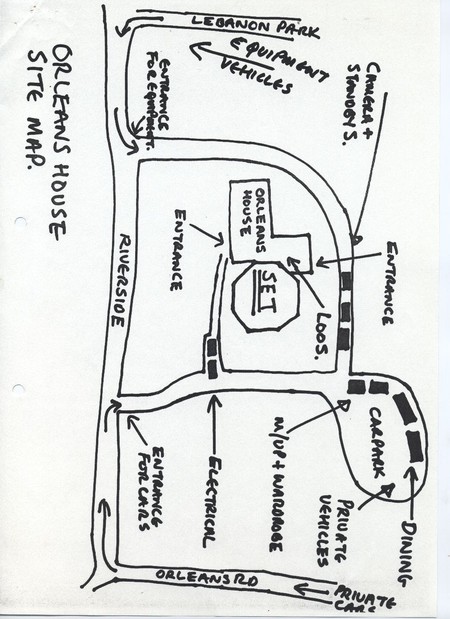 ORLEANS HOUSE
SITE MAP.
LEBANON PARK
EQUIPMENT
VEHICLES
ENTRANCE
FOR
CAMERA +
STANDBY S.
ORLEANS
HOUSE
ENTRANCE
ENTRANCE
SET
LOOS.
RIVERSIDE
CARPARK
M/UP + WARDROBE
PRIVATE
VEHICLES
DINING
ELECTRICAL
ENTRANCE
FOR CARS
ORLEANS RD
PRIVATE
CARS